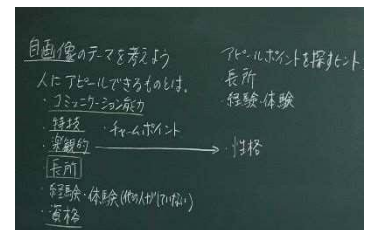 自画像のテーマを考えよう
人にアピールできるものは、
・コミュニケーション能力
・特技 ・チャームポイント
・楽観的 → ・性格
長所
・経験・体験(他の人がしていない)
・資格
アピールポイントを探すヒント
長所
・経験・体験